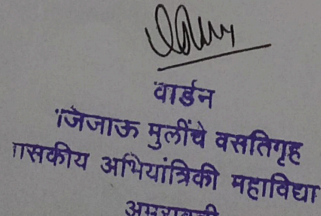 वार्डन
जिजाऊ मुलींचे वसतिगृह
ासकीय अभियांत्रिकी महाविद्या
अमरावती